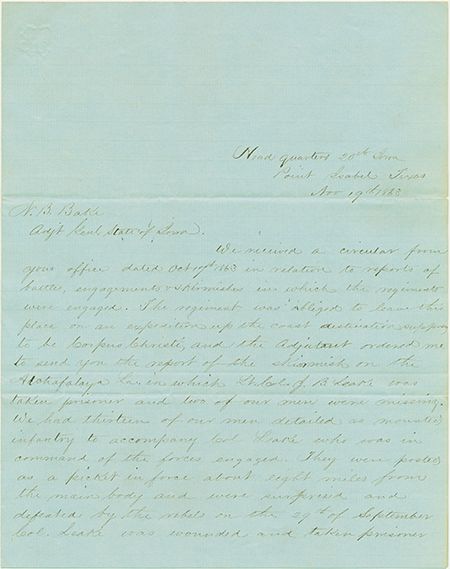 Head quarters 20th Iowa
Point Isabel Texas
Nov 19th 1863
N. B. Baker
Adjt Genl State of Iowa.
We received a circular from
your office dated Oct 19th 1863 in relation to reports of
battles, engagements & skirmishes in which the regiments
were engaged. The regiment was obliged to leave this
place on an expedition up the coast destination
to be Corpus Christi, and the Adjutant ordered me
to send you the report of the skirmish on the
Atchafalaya La. in which Lt. Col. J. B Leake was
taken prisoner and two of our men were missing.
We had thirteen of our men detailed as mounted
infantry to accompany Col Leake who was in
command of the forces engaged. They were posted
as a picket in force about eight miles from
the main body and were surprised and
defeated by the rebels on the 29th of September
Col. Leake was wounded and taken prisoner